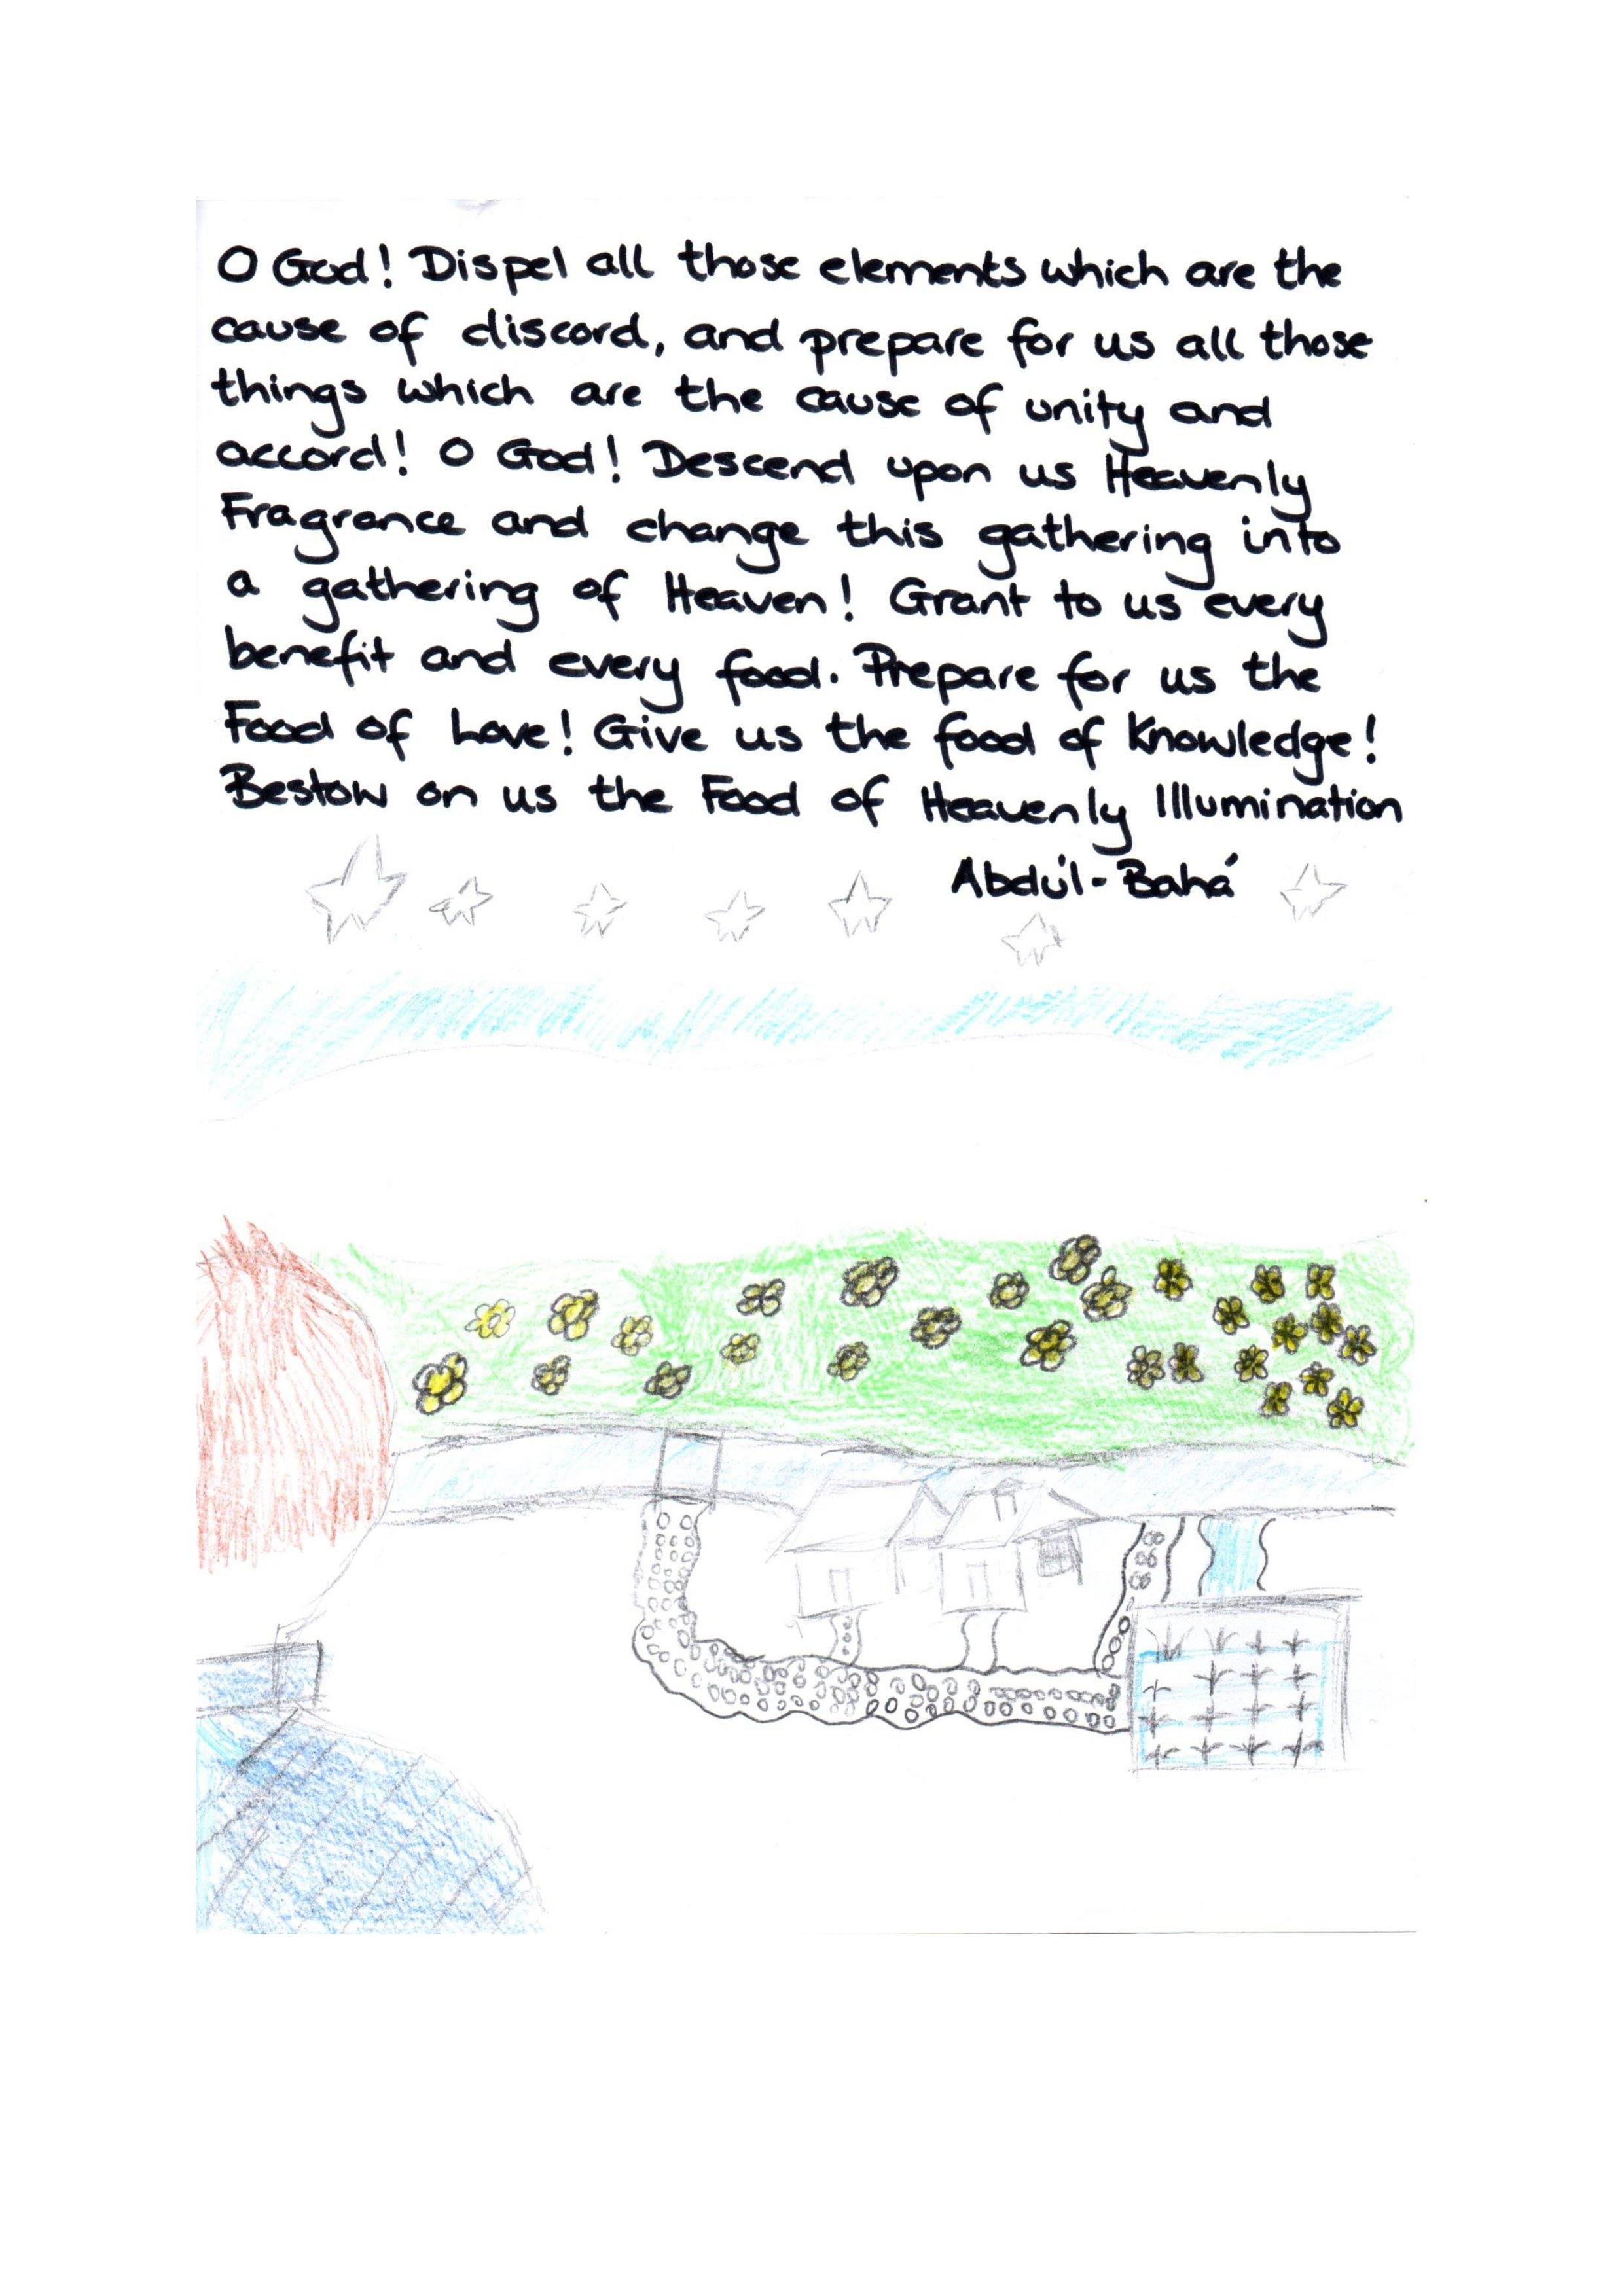 O God! Dispel all those elements which are the
cause of discord, and prepare for us all those
things which are the cause of unity and
accord! O God! Descend upon us Heavenly
Fragrance and change this gathering into
a gathering of Heaven! Grant to us every
benefit and every food. Prepare for us the
Food of Love! Give us the food of Knowledge!
Bestow on us the Food of Heavenly Illumination
Abdu'l-Bahá